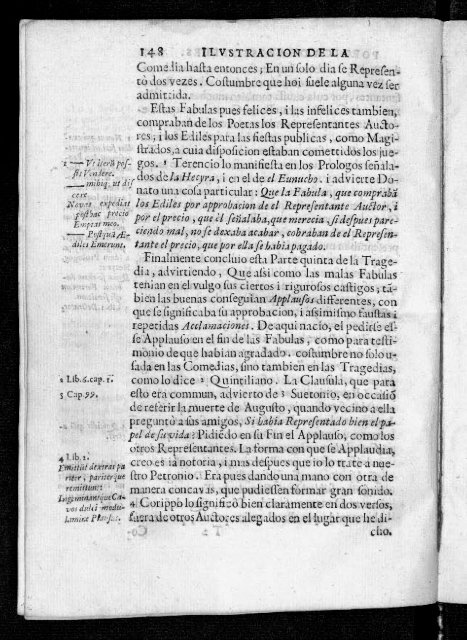 148 ILVSTRACION DE LA
Comedia hasta entonces; En un solo dia se Represen-
tò dos vezes. Costumbre que hoi suele alguna vez ser
admitida.
Estas Fabulas pues felices, i las infelices tambien,
compraban de los Poetas los Representantes Aucto-
res; i los Ediles para las fiestas publicas, como Magi-
strados, a cuia disposicion estaban cometidos los jue-
gos. ¹ Terencio lo manifiesta en los Prologos señala-
dos de la Hecyra, i en el de el Eunucho. i advierte Do-
nato una cosa particular: Que la Fabula, que compraba
los Ediles por approbacion de el Representante Auctor, i
por el precio, que èl señalaba, que merecia, si despues pare-
ciendo mal, no se dexaba acabar, cobraban de el Represen-
tante el precio, que por ella se habia pagado.
Finalmente concluio esta Parte quinta de la Trage-
dia, advirtiendo, Que assi como las malas Fabulas
tenian en el vulgo sus ciertos i rigurosos castigos; tã-
bien las buenas conseguian Applausos differentes, con
que se significaba su approbacion, i assimismo faustas i
repetidas Acclamaciones. De aqui nacio, el pedirse es-
se Applauso en el fin de las Fabulas, como para testi-
monio de que habian agradado. costumbre no solo u-
sada en las Comedias, sino tambien en las Tragedias,
como lo dice ² Quintiliano. La Clausula, que para
esto era commun, advierto de ³ Suetonio, en occasiõ
de referir la muerte de Augusto, quando vecino a ella
preguntò a sus amigos, Si habia Representado bien el pa-
pel de su vida: Pidiẽdo en su Fin el Applauso, como los
otros Representantes. La forma con que se Applaudia,
creo es ia notoria, i mas despues que io lo tratè a nue-
stro Petronio. Era pues dando una mano con otra de
manera concavas, que pudiessen formar gran sonido.
⁴ Corippo lo significò bien claramente en dos versos,
fuera de otros Auctores alegados en el lugar que he di-
cho.
1 — Vt iterũ pos-
sit Vendere.
— mihiq; ut dis
cere
Novas expediat
posthac precio
Emptas meo.
— Postquã Æ-
diles Emerunt.
2 Lib. 6. cap. 1.
3 Cap. 99.
4 Lib. 2.
Emittit dextras pa
riter, pariterque
remittunt: